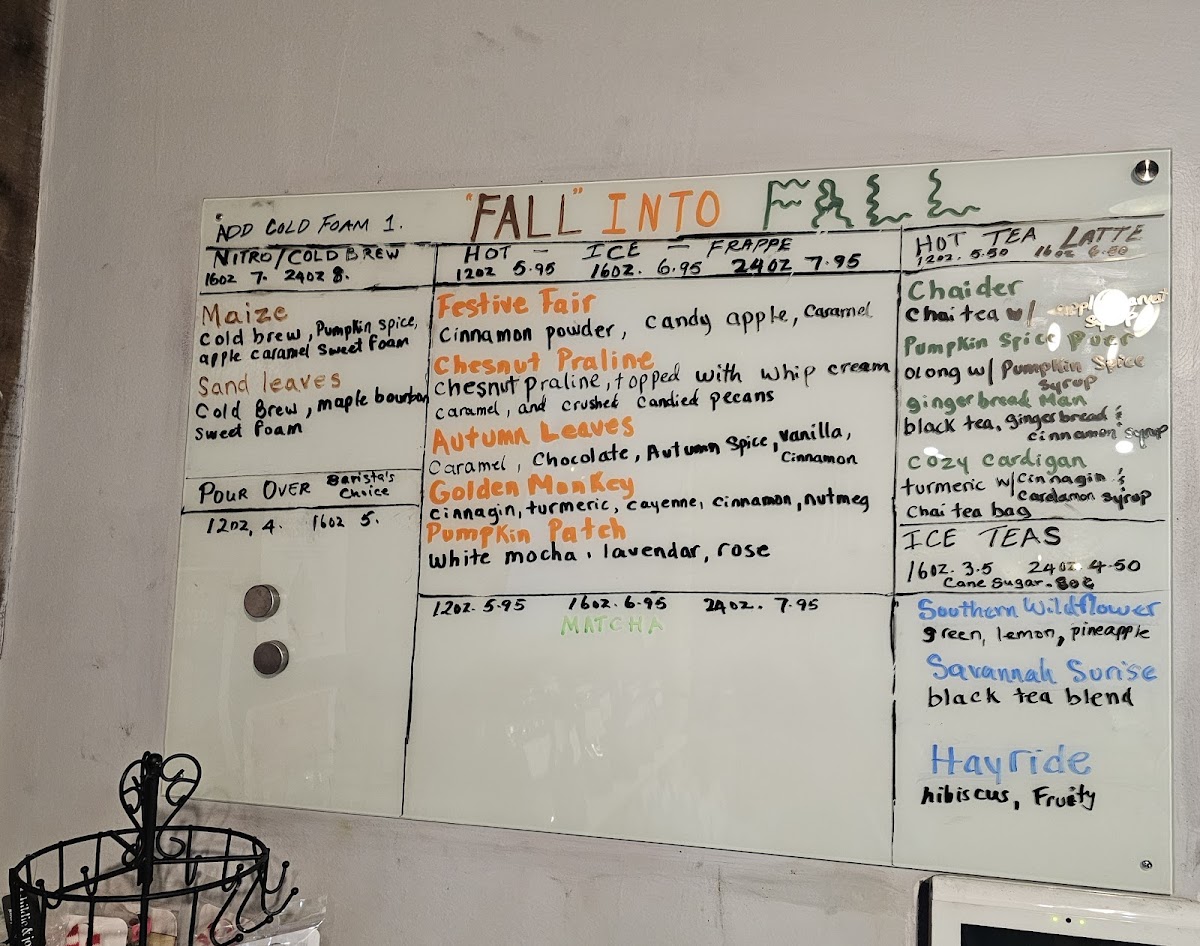 "FALL" INTO FALL
ADD COLD FOAM 1.
NITRO/COLD BREW
16oz 7. 24oz 8.
Maize
Cold brew, Pumpkin spice,
apple caramel sweet foam
Sand leaves
Cold Brew, maple bourbon
sweet foam
POUR OVER Barista's
Choice
12oz, 4. 16oz 5.
HOT - ICE - FRAPPE
12oz 5.95 16oz. 6.95 24oz 7.95
Festive Fair
Cinnamon powder, candy apple, caramel
Chesnut Praline
chesnut praline, topped with whip cream
caramel, and crushed candied pecans
Autumn Leaves
Caramel, Chocolate, Autumn Spice, vanilla,
Cinnamon
Golden Monkey
cinnagin, turmeric, cayenne, cinnamon, nutmeg
Pumpkin Patch
white mocha, lavendar, rose
12oz. 5.95 16oz. 6.95 24oz. 7.95
MATCHA
HOT TEA LATTE
12oz. 5.50 16oz 6.50
Chaider
Chai tea w/
syrup
Pumpkin Spice Puer
olong w/ Pumpkin Spice
syrup
gingerbread Man
black tea, gingerbread &
cinnamon syrup
cozy cardigan
turmeric w/cinnagin &
Cardamon syrup
Chai tea bag
ICE TEAS
16oz. 3.5 24oz. 4.50
Cane sugar. 80¢
Southern Wildflower
green, lemon, pineapple
Savannah Surise
black tea blend
Hayride
hibiscus, Fruity